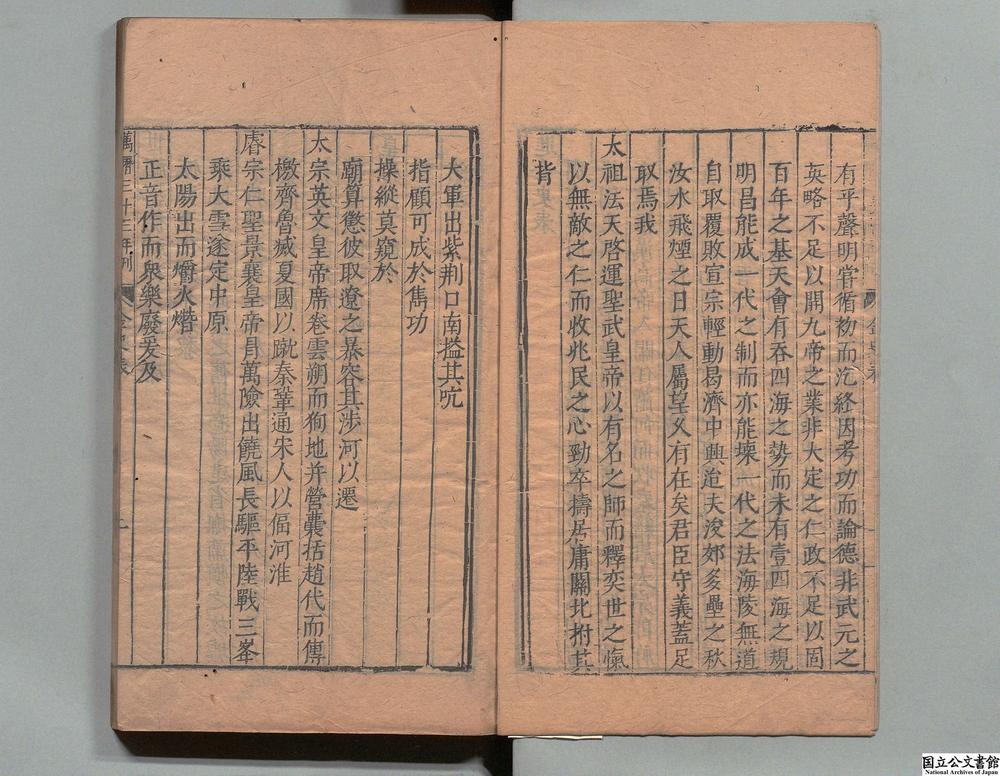 有乎聲明嘗循初而汔終因考功而論德非武元之
英略不足以開九帝之業非大定之仁政不足以固
百年之基天會有吞四海之勢而未有壹四海之規
明昌能成一代之制而亦能壞一代之法海陵無道
自取覆敗宣宗輕動曷濟中興迨夫浚郊多壘之秋
汝水飛煙之日天人屬望久有在矣君臣守義蓋足
取焉我
太祖法天啓運聖武皇帝以有名之師而釋奕世之愾
以無敵之仁而收兆民之心勁卒擣居庸關北拊其
背
大軍出紫荆口南搤其吭
指顧可成於雋功
操縱莫窺於
廟算懲彼取遼之暴容其涉河以遷
太宗英文皇帝席卷雲朔而徇地并營囊括趙代而傳
檄齊魯滅夏國以蹴秦鞏通宋人以偪河淮
睿宗仁聖景襄皇帝冐萬險出饒風長驅平陸戰三峯
乘大雪遂定中原
太陽出而爝火熸
正音作而衆樂廢爰及
萬曆三十三年刊
金史表
国立公文書館
National Archives of Japan